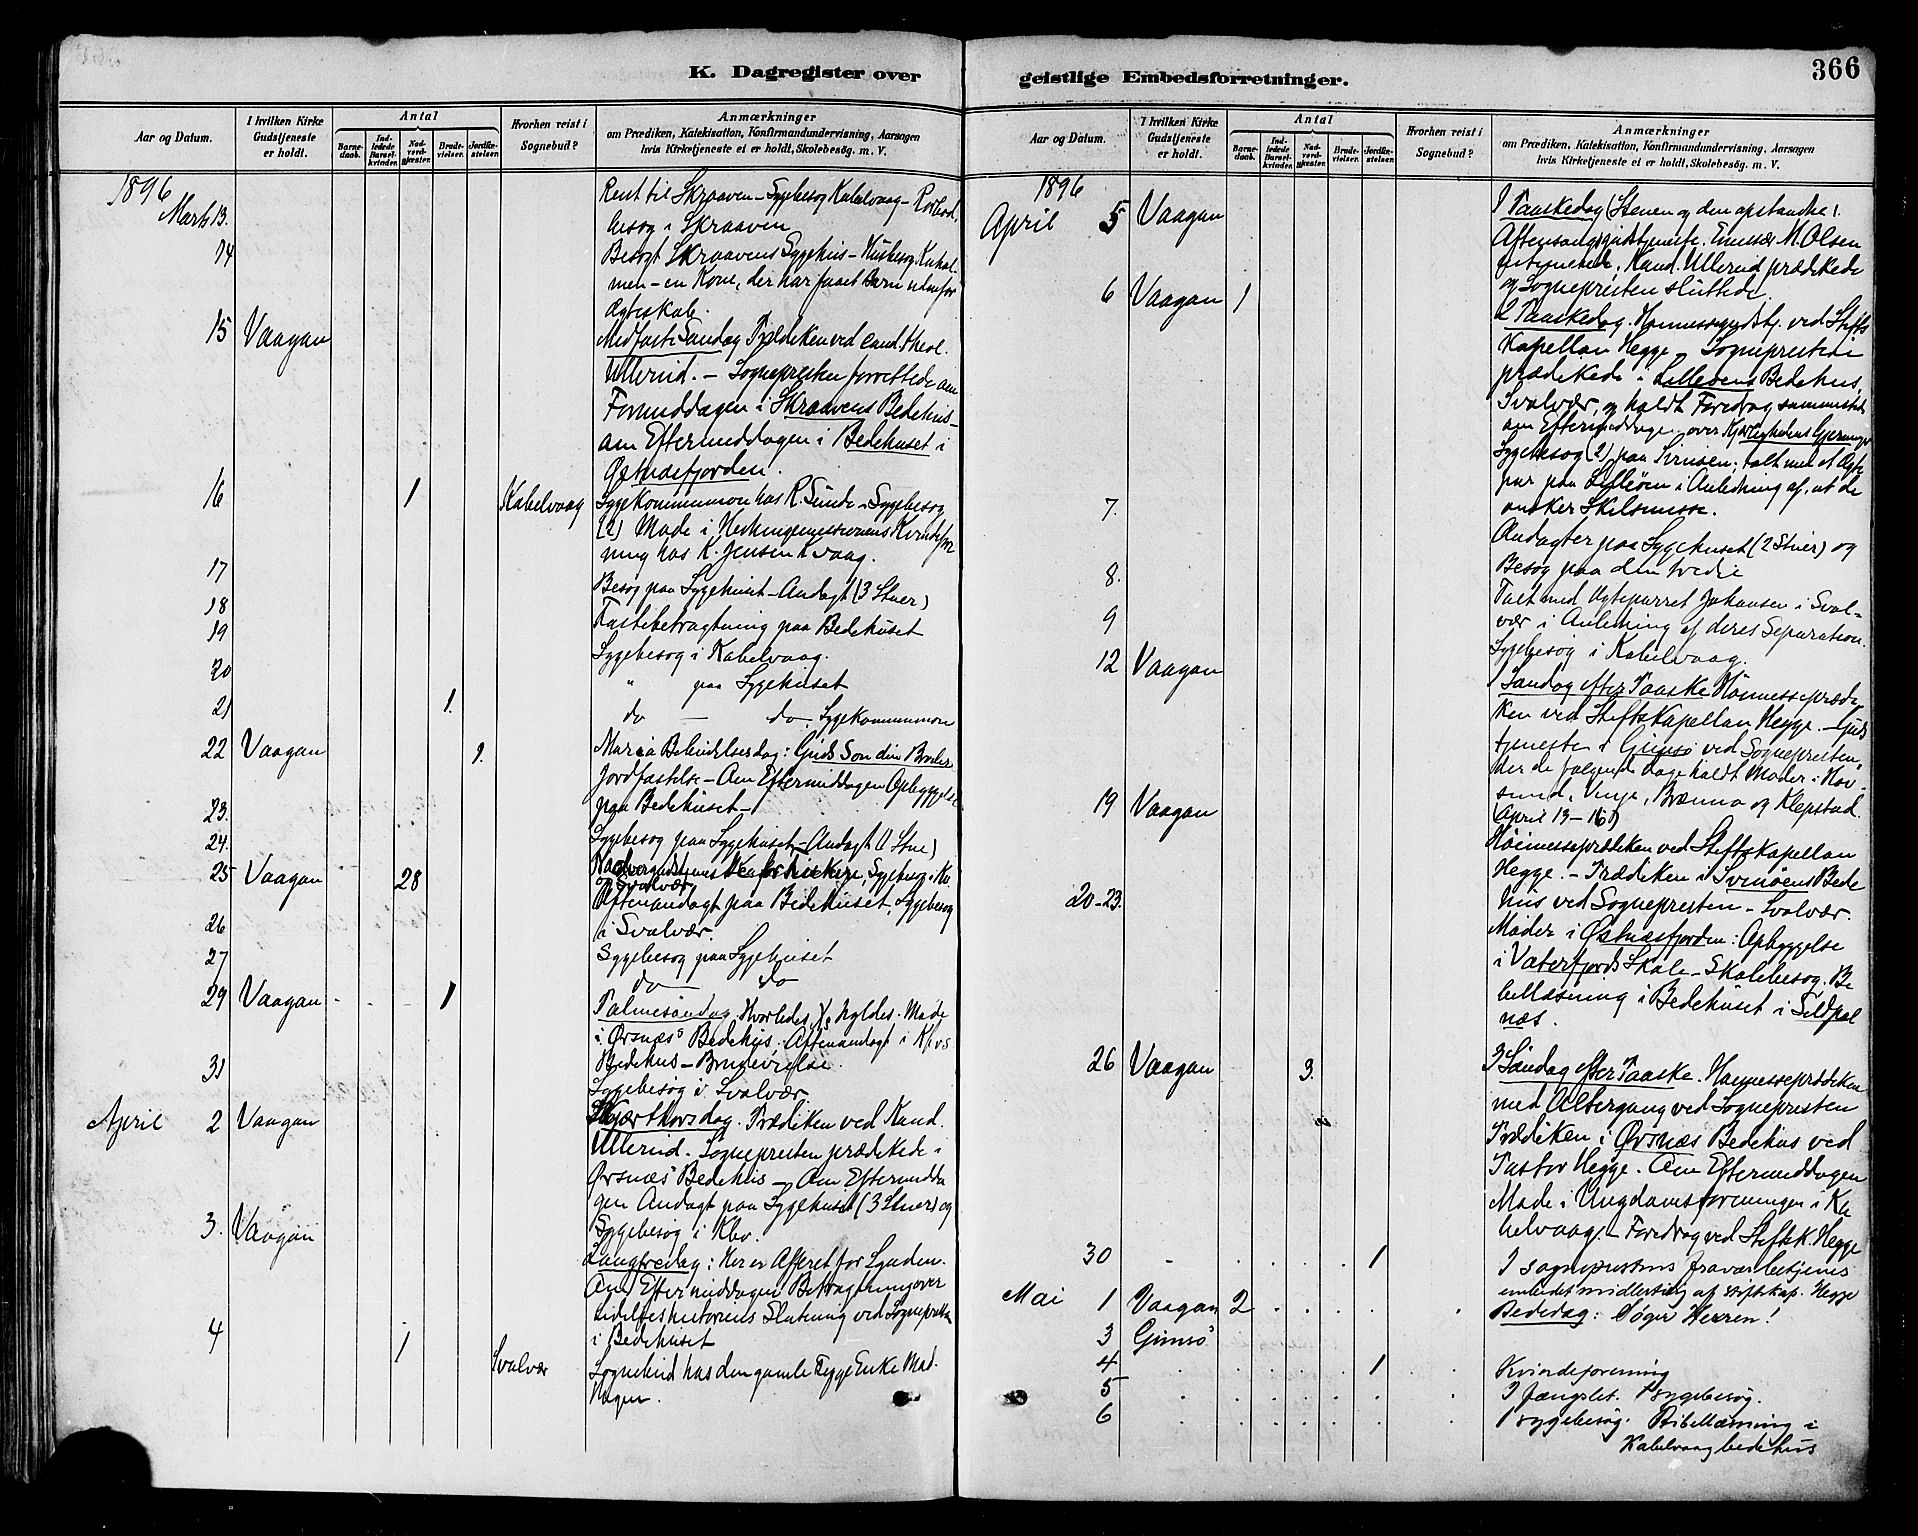 K. Dagregister over
Aar og Datum.
I hvilken Kirke Gudstjeneste er holdt.
Antal
Barnedaab.
Indledede Barselkvinder.
Nadverdgjæster.
Brudevielser.
Jordfæstelser.
Hvorhen reist i Sognebud?
Anmærkninger
om Prædiken, Katekisation, Konfirmandundervisning, Aarsagen
hvis Kirketjeneste ei er holdt, Skolebesøg. m. V.
1896
Marts 13. Reist til Skraaven - Sygebesøg Kabelvaag -
besøg i Skraaven
14 Besøgt Skraavens Sygehus - Husbesøg
men - en Kone, der har faaet Barn udenfor
Ægteskab.
15 Vaagan Midfaste Søndag Prædiken ved cand. theol.
Ullerud. - Sognepresten forrettede om
Formiddagen i Skraavens Bedehus -
om Eftermiddagen i Bedehuset i
Østnesfjorden.
16 1 Kabelvaag Sygekommunion hos R. Sunde - Sygebesøg
(2) Møde i Hedningemissionens Kvindefor
ning hos K. Jensen Kvaag.
17 Besøg paa Sygehuset - Andagt (3 Stuer)
18 Fastebetragtning paa Bedehuset
19 Sygebesøg i Kabelvaag.
20 " paa Sygehuset
21 1. do - do - Sygekommunion
22 Vaagan 1. Maria Bebudelsesdag: Guds Søn din Broder
Jordfæstelse - Om Eftermiddagen Opbyggelse
paa Bedehuset -
23. Sygebesøg paa Sygehuset - Andagt (1 Stue)
24.
25 Vaagan 28 Sygebesøg i
og Svolvær
Aftenandagt paa Bedehuset, Sygebesøg
26 i Svolvær.
27 Sygebesøg paa Sygehuset
do - do
29 Vaagan - - - 1 Palmesøndag. Hvorledes hyldes. Møde
i Ørsnæs' Bedehus. Aftenandagt i
Bedehus - Brudevielse.
31 Sygebesøg i Svolvær.
April 2 Vaagan Skjærthorsdag. Prædiken ved Kand.
Ullerud. Sognepresten prædikede i
Ørsnæs' Bedehus - Om Eftermidda
gen Andagt paa Sygehuset (3 Stuer) og
Sygebesøg i Kbv.
3. Vaagan Langfredag: Her er Offeret for Synden.
Om Eftermiddagen Betragtning over
Lidelseshistoriens Slutning ved Sognepresten
i Bedehuset
4 1 Svolvær Sognebud hos den gamle Enke

geistlige Embedsforretninger.
366
Aar og Datum.
I hvilken Kirke Gudstjeneste er holdt.
Antal
Barnedaab.
Indledede Barselkvinder.
Nadverdgjæster.
Brudevielser.
Jordfæstelser.
Hvorhen reist i Sognebud?
Anmærkninger
om Prædiken, Katekisation, Konfirmandundervisning, Aarsagen
hvis Kirketjeneste ei er holdt, Skolebesøg. m. V.
1896
April 5 Vaagan 1 Paaskedag (Stenen og den opstandne).
Aftensangsgudstjeneste. Emissær M. Olsen
Kand. Ullerud prædikede
og Sognepresten sluttede.
6 Vaagan 1 2 Paaskedag. Høimessegudstj. ved Stifts
Kapellan Hegge - Sognepresten
prædikede i Lilleøens Bedehus,
Svolvær, og holdt Foredrag sammesteds
om Eftermiddagen over Kjærlighedens Gjerninger
Sygebesøg (2) paa Svinøen; talt med et Ægte
par paa Lilleøen i Anledning af, at de
ønsker Skilsmisse.
7. Andagter paa Sygehuset (2 Stuer) og
Besøg paa den tredie
8. Talt med Ægteparret Johansen i Svol-
vær i Anledning af deres Separation.
9 Sygebesøg i Kabelvaag.
12 Vaagan 1 Søndag efter Paaske Høimesseprædi
ken ved Stiftskapellan Hegge - Guds
tjeneste i Gimsø ved Sognepresten,
der de følgende Dage holdt Møder i Hov-
sund, Vinje, Brænna og Klepstad
(April 13-16)
19 Vaagan Høimesseprædiken ved Stiftskapellan
Hegge. - Prædiken i Svinøens Bede
hus ved Sognepresten - Svolvær.
20-23. Møder i Østnæsfjorden: Opbyggelse
i Vaterfjords Skole - Skolebesøg. Bi
bellæsning i Bedehuset i Sildpol
næs.
26 Vaagan 3. 3 Søndag efter Paaske. Høimesseprædiken
med Altergang ved Sognepresten
Prædiken i Ørsnæs Bedehus ved
Pastor Hegge. Om Eftermiddagen
Møde i Ungdomsforeningen i Ka
belvaag. - Foredrag ved Stiftsk. Hegge
30 1 I sognepræstens fravær betjenes
embedet midlertidig af stiftskap. Hegge
Mai 1 Vaagan 2 Bededag: Søger Herren!
3 Gimsø
4 1 Kvindeforening
5 I fængslet. 1 sygebesøg.
6 1 sygebesøg. Bibellæsning i
Kabelvaag bedehus